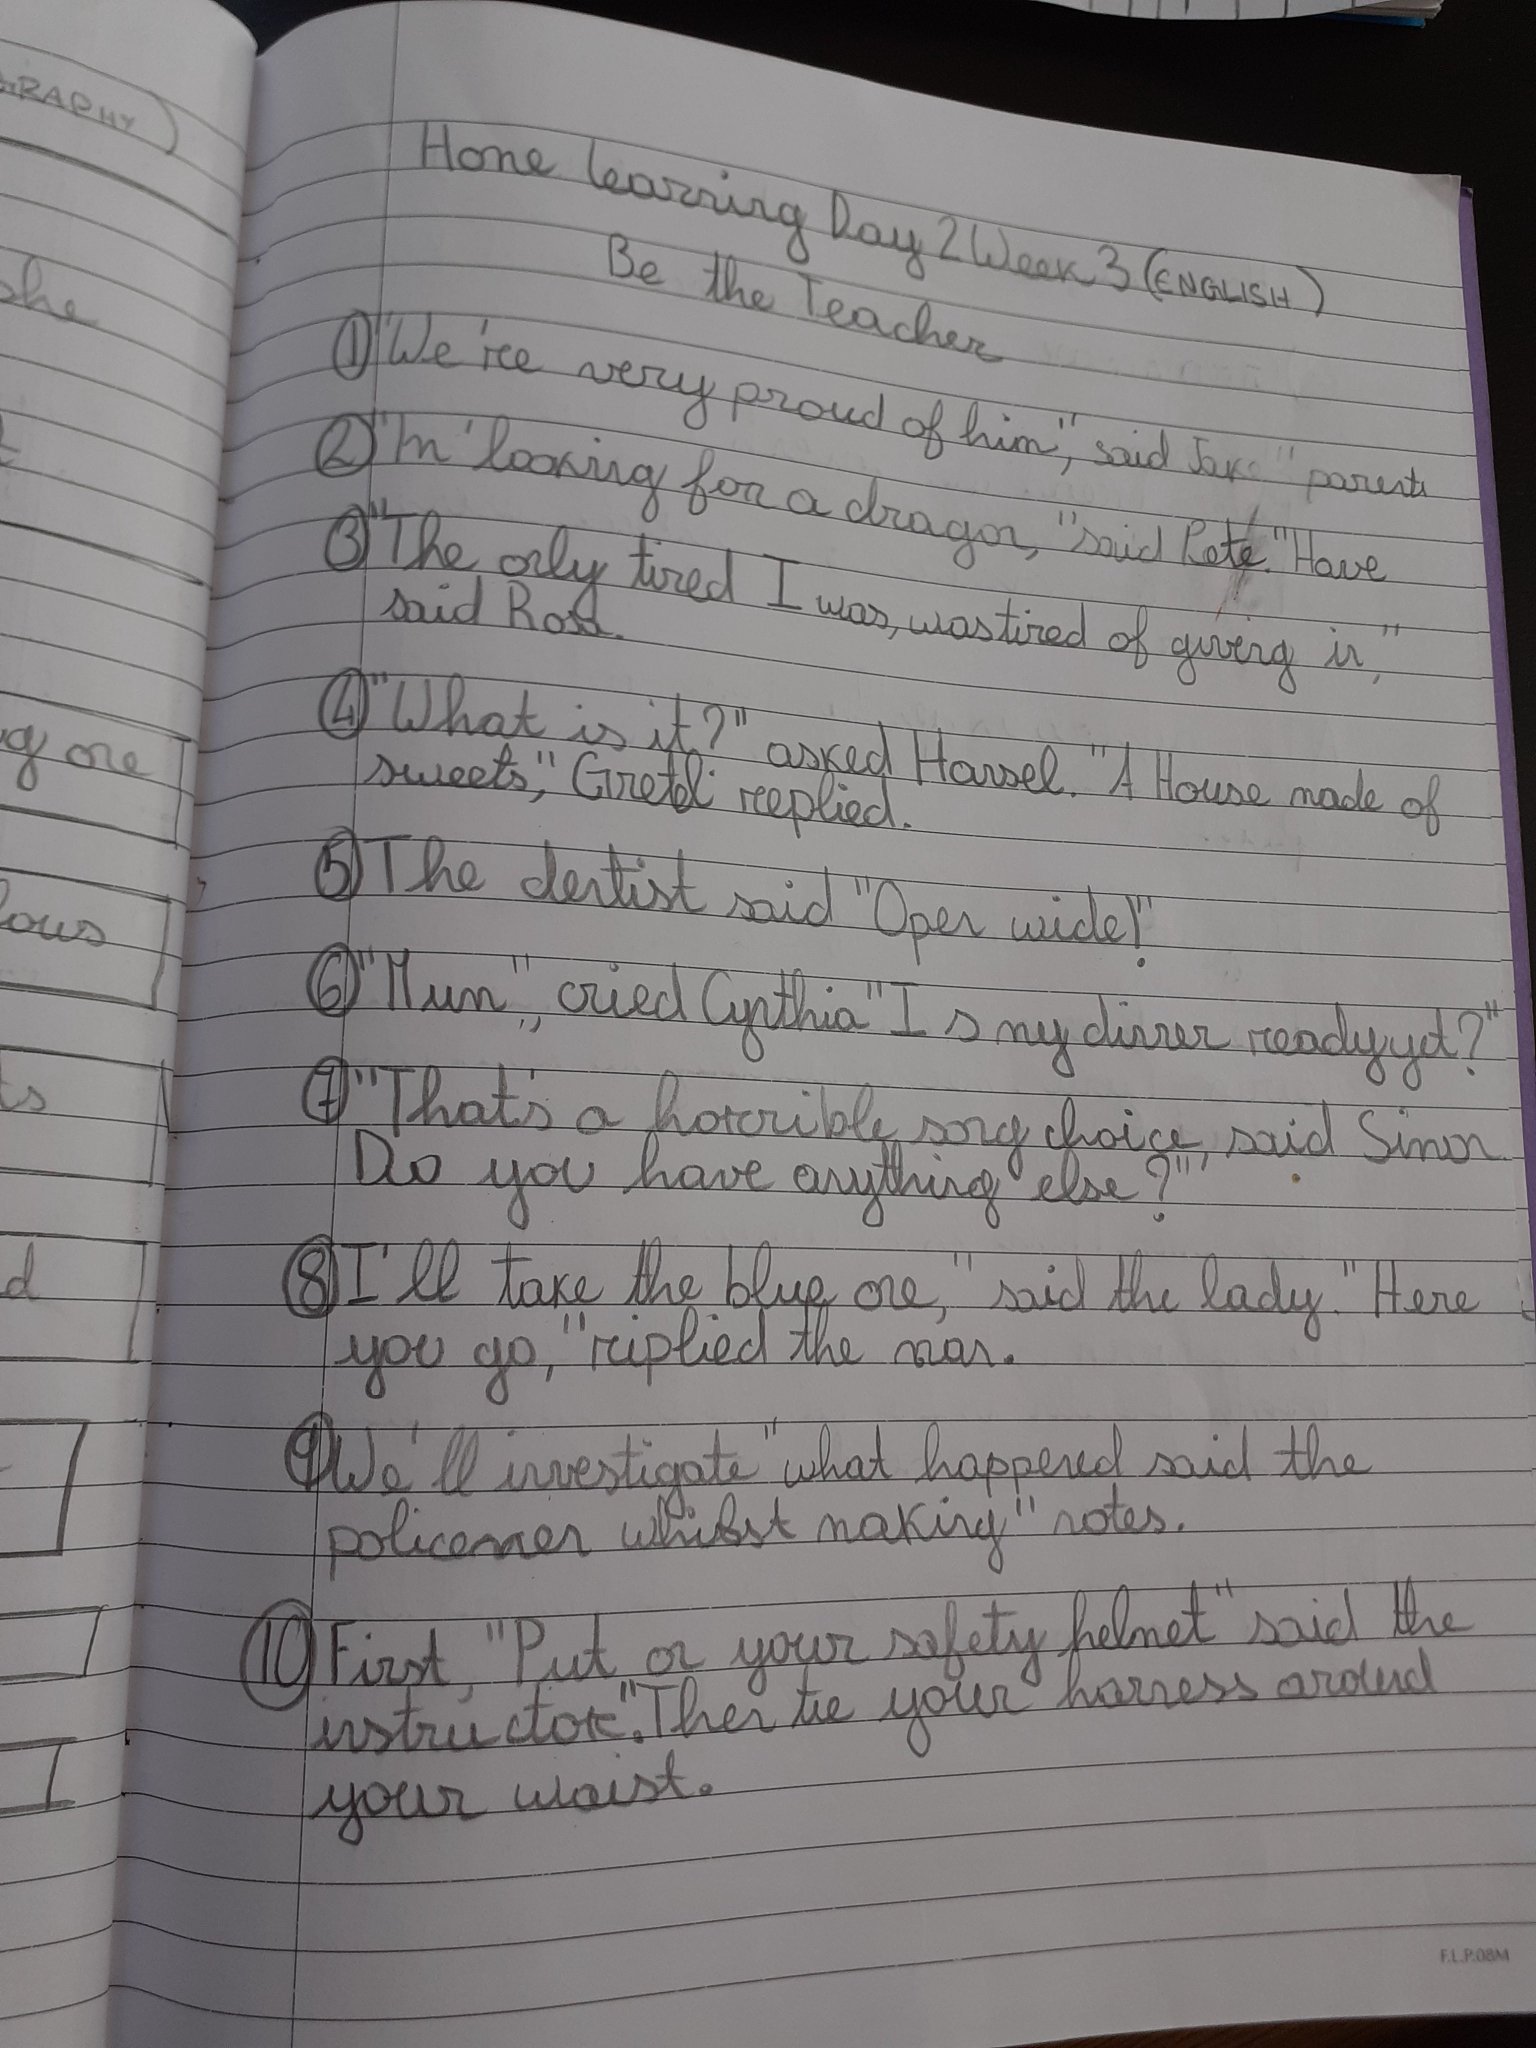 GRAPHY)
she
ng one
lous
ts
d
Home learning Day 2 Week 3 (ENGLISH)
Be the Teacher
① "We're very proud of him", said Jake" parents
② "I'm looking for a dragon, "said Pete. "Have
③ "The only tired I was, was tired of giving in,"
said Rosa.
④ "What is it?" asked Hansel. "A House made of
sweets," Gretel replied.
⑤ The dentist said "Open wide!"
⑥ "Mum", cried Cynthia "Is my dinner ready yet?"
⑦ "That's a horrible song choice, said Simon
Do you have anything else?"
⑧ I'll take the blue one," said the lady. "Here
you go, "riplied the man.
⑨ We'll investigate "what happened said the
policemen whilst making" notes.
⑩ First, "Put on your safety helmet" said the
instructor". Then tie your harness around
your waist.
F.L.P.08M